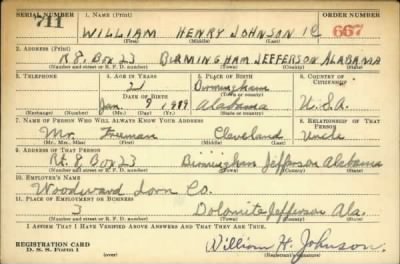 SERIAL NUMBER 1. NAME (Print) ORDER NUMBER
711 WILLIAM HENRY JOHNSON 667
(First) (Middle) (Last)
2. ADDRESS (Print)
R 8, Box 23 BIRMINGHAM JEFFERSON ALABAMA
(Number and street or R. F. D. number) (Town) (County) (State)
3. TELEPHONE 4. AGE IN YEARS 5. PLACE OF BIRTH 6. COUNTRY OF CITIZENSHIP
21 Birmingham
DATE OF BIRTH (Town or county)
Jan. 9 1919 Alabama U.S.A.
(Exchange) (Number) (Mo.) (Day) (Yr.) (State or country)
7. NAME OF PERSON WHO WILL ALWAYS KNOW YOUR ADDRESS 8. RELATIONSHIP OF THAT PERSON
Mr. Freeman Cleveland Uncle
(Mr., Mrs., Miss) (First) (Middle) (Last)
9. ADDRESS OF THAT PERSON
Rt. 8 Box 23 Birmingham Jefferson Alabama
(Number and street or R. F. D. number) (Town) (County) (State)
10. EMPLOYER'S NAME
Woodward Iorn Co.
11. PLACE OF EMPLOYMENT OR BUSINESS
3 Dolomite Jefferson Ala.
(Number and street or R. F. D. number) (Town) (County) (State)
I AFFIRM THAT I HAVE VERIFIED ABOVE ANSWERS AND THAT THEY ARE TRUE.
REGISTRATION CARD
D. S. S. Form 1 (over) William H. Johnson
(Registrant's signature)